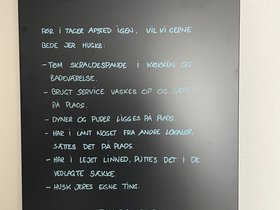 FØR I TAGER AFSTED IGEN, VIL VI GERNE
BEDE JER HUSKE:
- TØM SKRALDESPANDE I KØKKEN OG
BADEVÆRELSE.
- BRUGT SERVICE VASKES OP OG SÆTTES
PÅ PLADS.
- DYNER OG PUDER LIGGES PÅ PLADS.
- HAR I LÅNT NOGET FRA ANDRE LOKALER,
SÆTTES DET PÅ PLADS.
- HAR I LEJET LINNED, PUTTES DET I DE
VEDLAGTE SÆKKE.
- HUSK JERES EGNE TING.